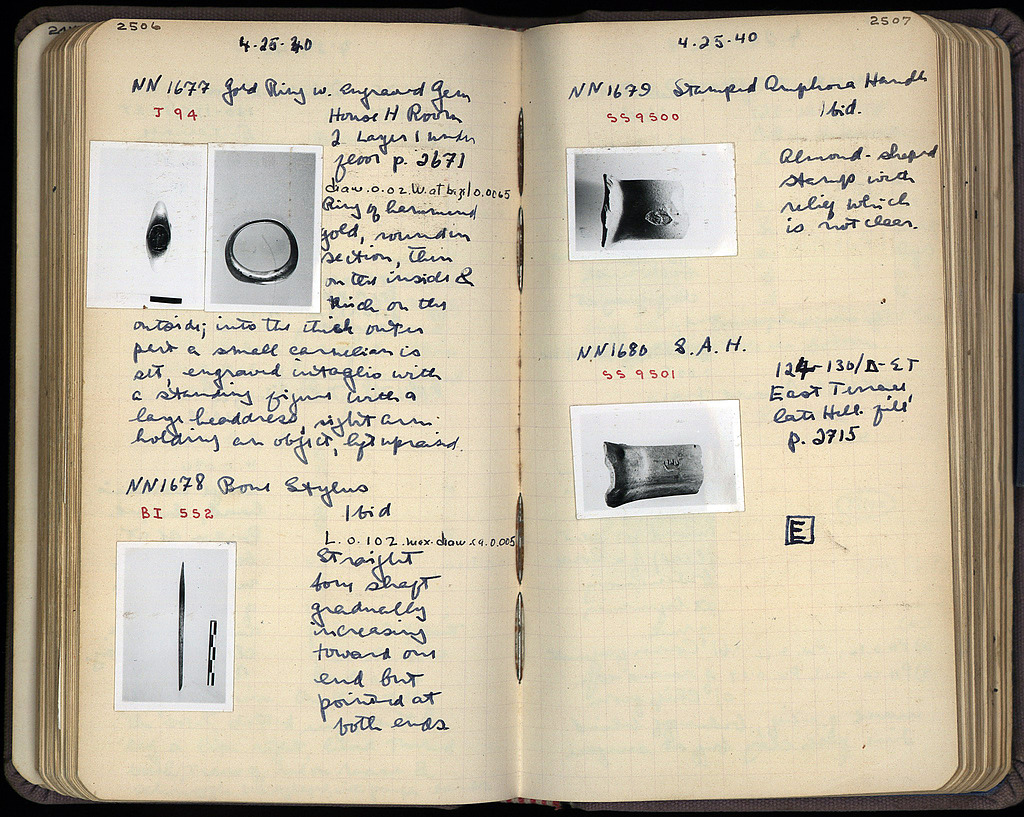 2506
4·25·40
NN1677 Gold Ring w. engraved Gem
J 94
House H Room
2 Layer 1 under
floor p. 2671
diam. 0.02. W. at bezel 0.0065
Ring of hammered
gold, round in
section, thin
on the inside &
thick on the
outside; into the thick outer
part a small carnelian is
set, engraved intaglio with
a standing figure with a
large headdress, right arm
holding an object, left upraised.
NN1678 Bone Stylus
BI 552
Ibid
L. 0.102. max. diam. ca. 0.005
Straight
bone shaft
gradually
increasing
toward one
end but
pointed at
both ends
2507
4·25·40
NN1679 Stamped Amphora Handle
SS9500
Ibid.
Almond-shaped
stamp with
relief which
is not clear.
NN1680 S.A.H.
SS 9501
124-130/Δ-ET
East Terrace
late Hell. fill
p. 2715
E